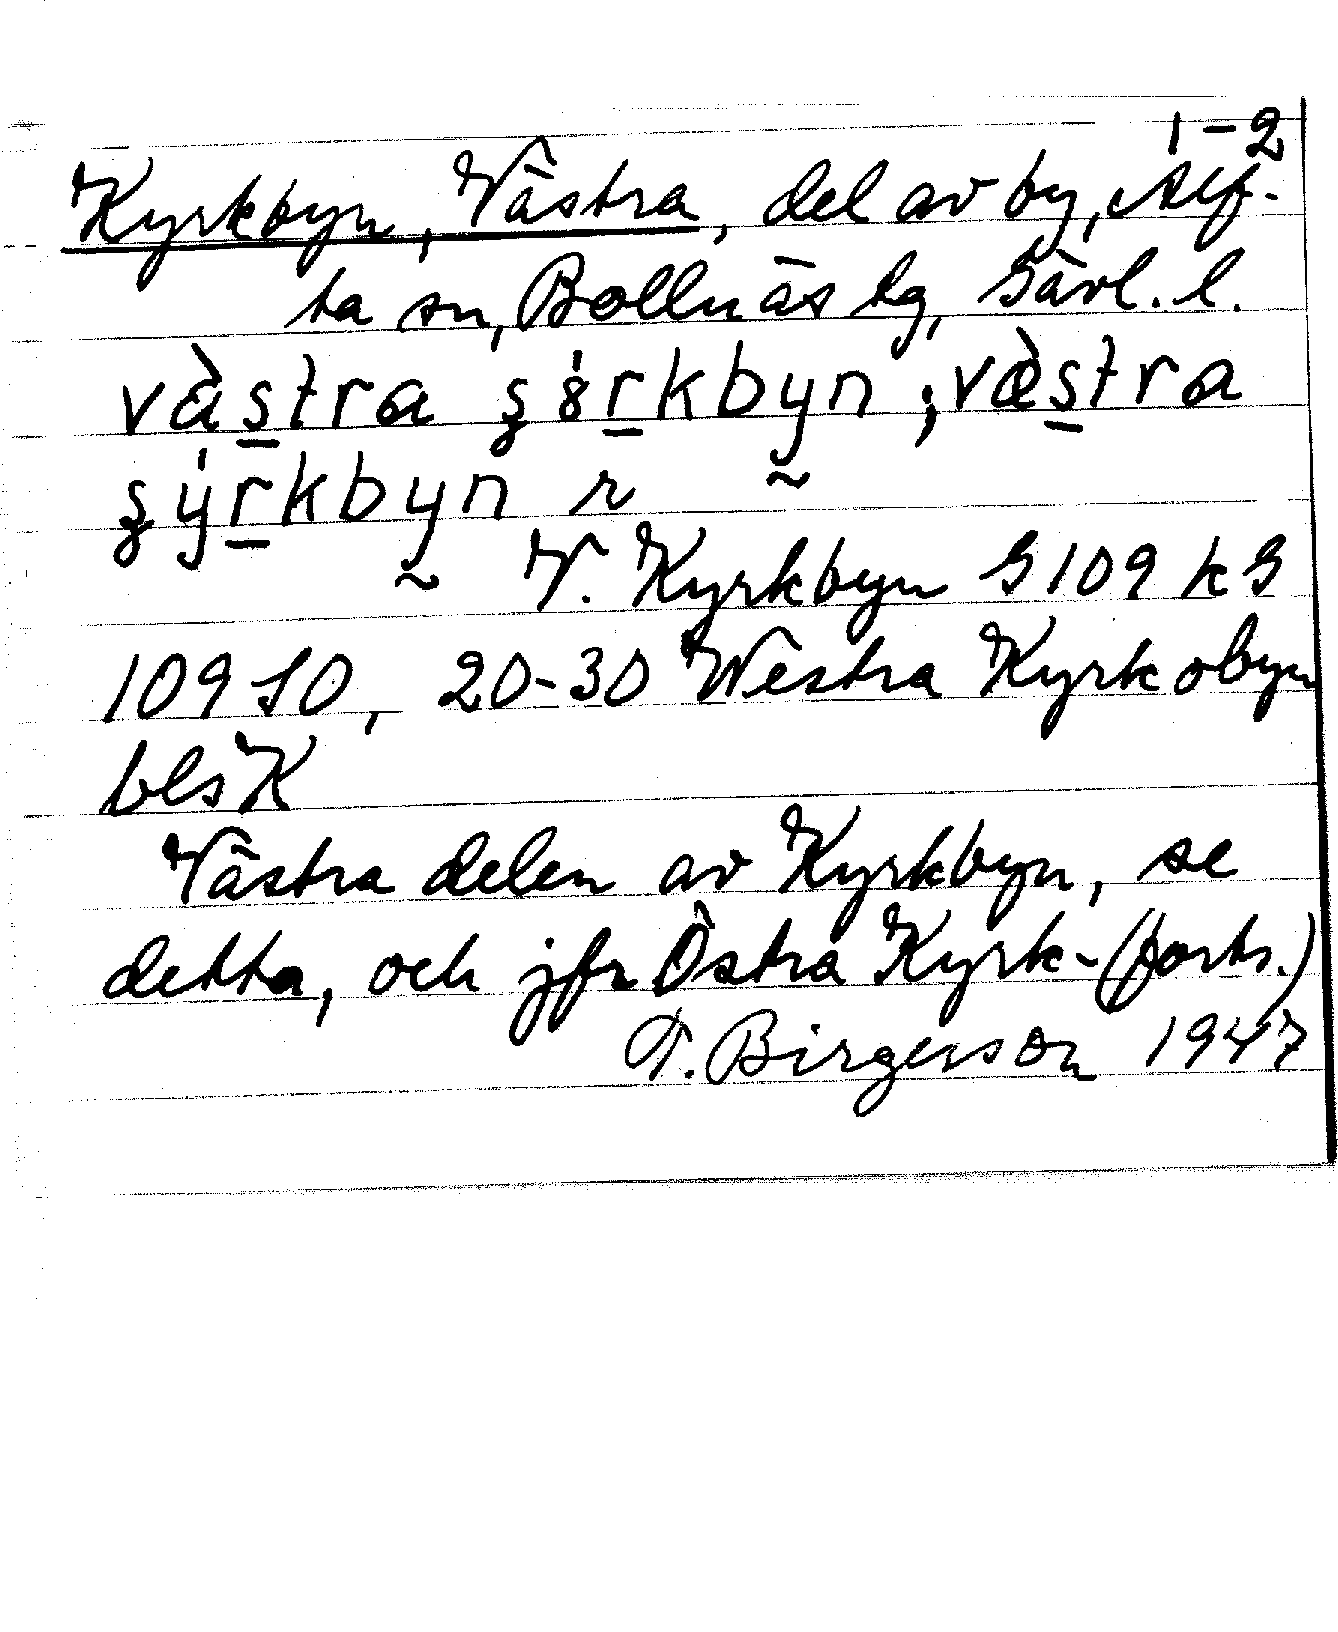 1-2
Kyrkbyn, Västra, del av by, Alf-
ta sn, Bollnäs tg, Gävl. l.
västra kyrkbyn V. Kyrkbyn G 109 k G
109 SO, 20-30 Westra Kyrkobyn
bls K
Västra delen av Kyrkbyn, se
detta, och jfr Östra Kyrk- (forts.)
T. Birgersson 1947